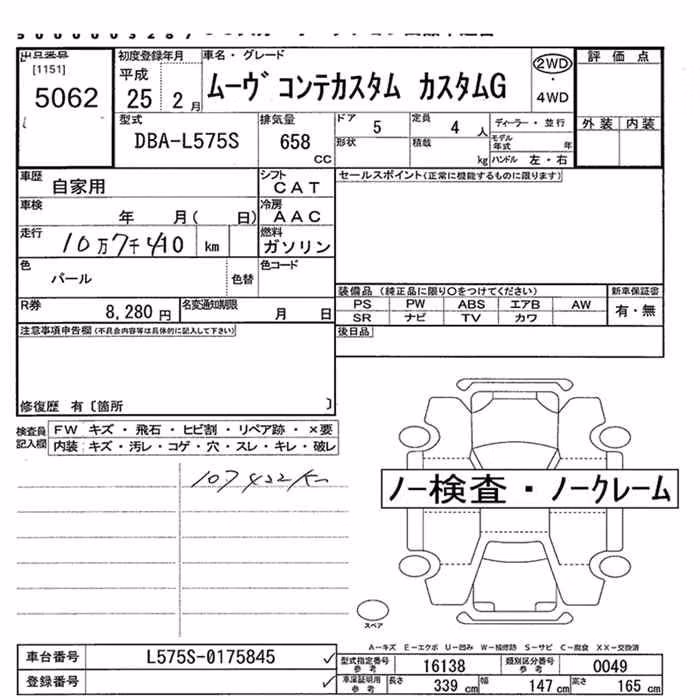 出品番号 初度登録年月 車名・グレード 評価点
[1151] 平成 2WD
5062 25 2月 ムーヴ コンテカスタム カスタムG ・
4WD
型式 排気量 ドア 5 定員 4人 ディーラー・並行 外装 内装
DBA-L575S 658 cc 形状 積載 kg モデル年式 年
ハンドル 左・右
車歴 自家用 シフト CAT セールスポイント(正常に機能するものに限ります)
車検 年 月( 日) 冷房 AAC
走行 10万7千410 km 燃料 ガソリン
色 パール 色替 色コード
装備品 (純正品に限り〇をつけてください) 新車保証書
R券 8,280円 名変通知期限 月 日 PS PW ABS エアB AW 有・無
SR ナビ TV カワ
注意事項申告欄(不具合内容等は具体的に記入して下さい) 後日品
修復歴 有〔箇所 〕
検査員記入欄 FW キズ・飛石・ヒビ割・リペア跡・×要
内装・キズ・汚レ・コゲ・穴・スレ・キレ・破レ
107422km
ノー検査・ノークレーム
スペア
A-キズ E-エクボ U-凹み W-補修跡 S-サビ C-腐食 XX-交換済
車台番号 L575S-0175845 ✓ 型式指定番号 参考 16138 類別区分番号 参考 0049
登録番号 ✓ 車庫証明用 参考 長さ 339 cm 幅 147 cm 高さ 165 cm